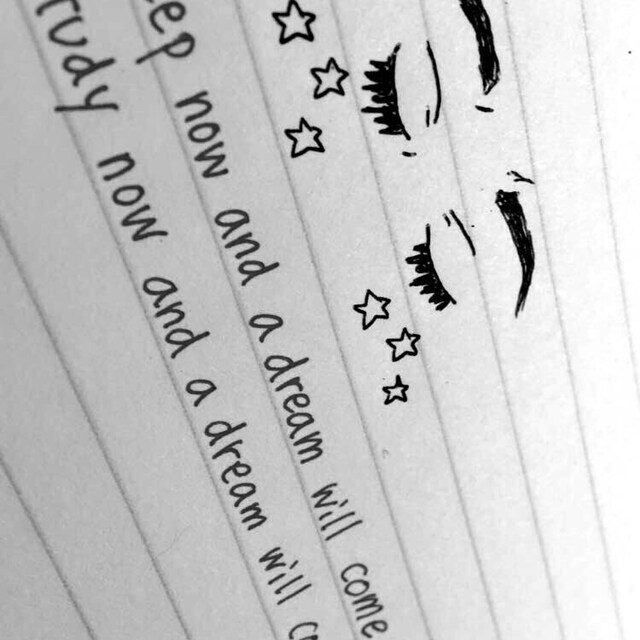 eep now and a dream will come
tudy now and a dream will co